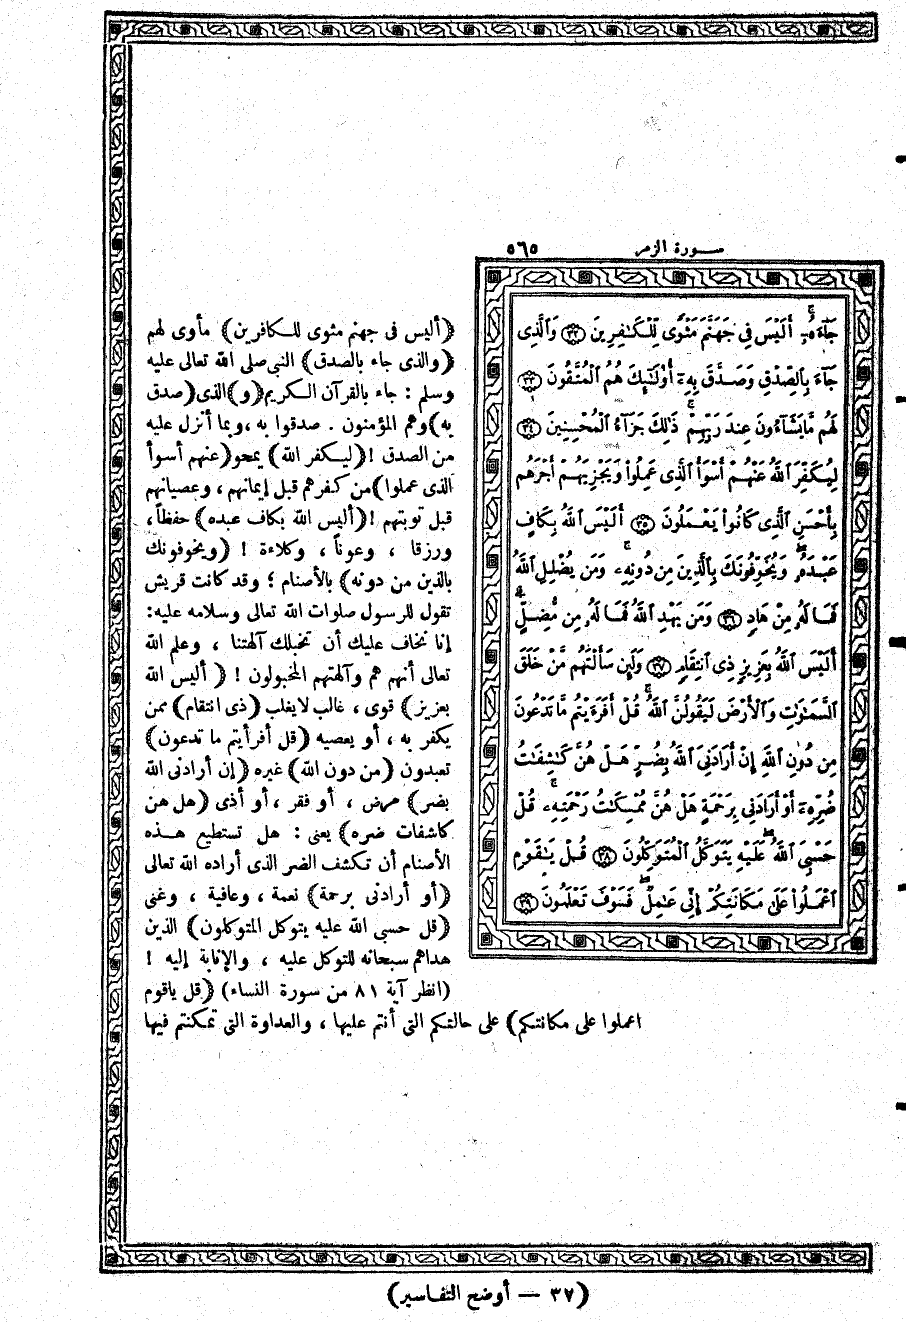 سورة الزمر ٥٦٥
جَآءَهُۥٓ ۚ أَلَيْسَ فِى جَهَنَّمَ مَثْوًى لِّلْكَٰفِرِينَ ٣٢ وَٱلَّذِى
جَآءَ بِٱلصِّدْقِ وَصَدَّقَ بِهِۦٓ أُو۟لَٰٓئِكَ هُمُ ٱلْمُتَّقُونَ ٣٣
لَهُم مَّا يَشَآءُونَ عِندَ رَبِّهِمْ ۚ ذَٰلِكَ جَزَآءُ ٱلْمُحْسِنِينَ ٣٤
لِيُكَفِّرَ ٱللَّهُ عَنْهُمْ أَسْوَأَ ٱلَّذِى عَمِلُوا۟ وَيَجْزِيَهُمْ أَجْرَهُم
بِأَحْسَنِ ٱلَّذِى كَانُوا۟ يَعْمَلُونَ ٣٥ أَلَيْسَ ٱللَّهُ بِكَافٍ
عَبْدَهُۥ ۖ وَيُخَوِّفُونَكَ بِٱلَّذِينَ مِن دُونِهِۦ ۚ وَمَن يُضْلِلِ ٱللَّهُ
فَمَا لَهُۥ مِنْ هَادٍ ٣٦ وَمَن يَهْدِ ٱللَّهُ فَمَا لَهُۥ مِن مُّضِلٍّ ۗ
أَلَيْسَ ٱللَّهُ بِعَزِيزٍ ذِى ٱنتِقَامٍ ٣٧ وَلَئِن سَأَلْتَهُم مَّنْ خَلَقَ
ٱلسَّمَٰوَٰتِ وَٱلْأَرْضَ لَيَقُولُنَّ ٱللَّهُ ۚ قُلْ أَفَرَءَيْتُم مَّا تَدْعُونَ
مِن دُونِ ٱللَّهِ إِنْ أَرَادَنِىَ ٱللَّهُ بِضُرٍّ هَلْ هُنَّ كَٰشِفَٰتُ
ضُرِّهِۦٓ أَوْ أَرَادَنِى بِرَحْمَةٍ هَلْ هُنَّ مُمْسِكَٰتُ رَحْمَتِهِۦ ۚ قُلْ
حَسْبِىَ ٱللَّهُ ۖ عَلَيْهِ يَتَوَكَّلُ ٱلْمُتَوَكِّلُونَ ٣٨ قُلْ يَٰقَوْمِ
ٱعْمَلُوا۟ عَلَىٰ مَكَانَتِكُمْ إِنِّى عَٰمِلٌ ۖ فَسَوْفَ تَعْلَمُونَ ٣٩
﴿أليس فى جهنم مثوى للكافرين﴾ مأوى لهم
﴿والذى جاء بالصدق﴾ النبي صلى الله تعالى عليه
وسلم : جاء بالقرآن الكريم ﴿و﴾ الذى ﴿صدق
به﴾ وهم المؤمنون . صدقوا به ، وبما أنزل عليه
من الصدق ! ﴿ليكفر الله﴾ يمحو ﴿عنهم أسوأ
الذى عملوا﴾ من كفرهم قبل إيمانهم ، وعصيانهم
قبل توبتهم ! ﴿أليس الله بكاف عبده﴾ حفظاً ،
ورزقا ، وعوناً ، وكلاءة ! ﴿ويخوفونك
بالذين من دونه﴾ بالأصنام ؛ وقد كانت قريش
تقول للرسول صلوات الله تعالى وسلامه عليه:
إنا نخاف عليك أن تخبلك آلهتنا ، وعلم الله
تعالى أنهم هم وآلهتهم المخبولون ! ﴿أليس الله
بعزيز﴾ قوى ، غالب لا يغلب ﴿ذى انتقام﴾ ممن
يكفر به ، أو يعصيه ﴿قل أفرأيتم ما تدعون﴾
تعبدون ﴿من دون الله﴾ غيره ﴿إن أرادنى الله
بضر﴾ مرض ، أو فقر ، أو أذى ﴿هل هن
كاشفات ضره﴾ يعنى : هل تستطيع هذه
الأصنام أن تكشف الضر الذى أراده الله تعالى
﴿أو أرادنى برحمة﴾ نعمة ، وعافية ، وغنى
﴿قل حسبى الله عليه يتوكل المتوكلون﴾ الذين
هداهم سبحانه للتوكل عليه ، والإنابة إليه !
(انظر آية ٨١ من سورة النساء) ﴿قل ياقوم
اعملوا على مكانتكم﴾ على حالتكم التى أنتم عليها ، والعداوة التى تمكنتم فيها
(٣٧ — أوضح التفاسير)